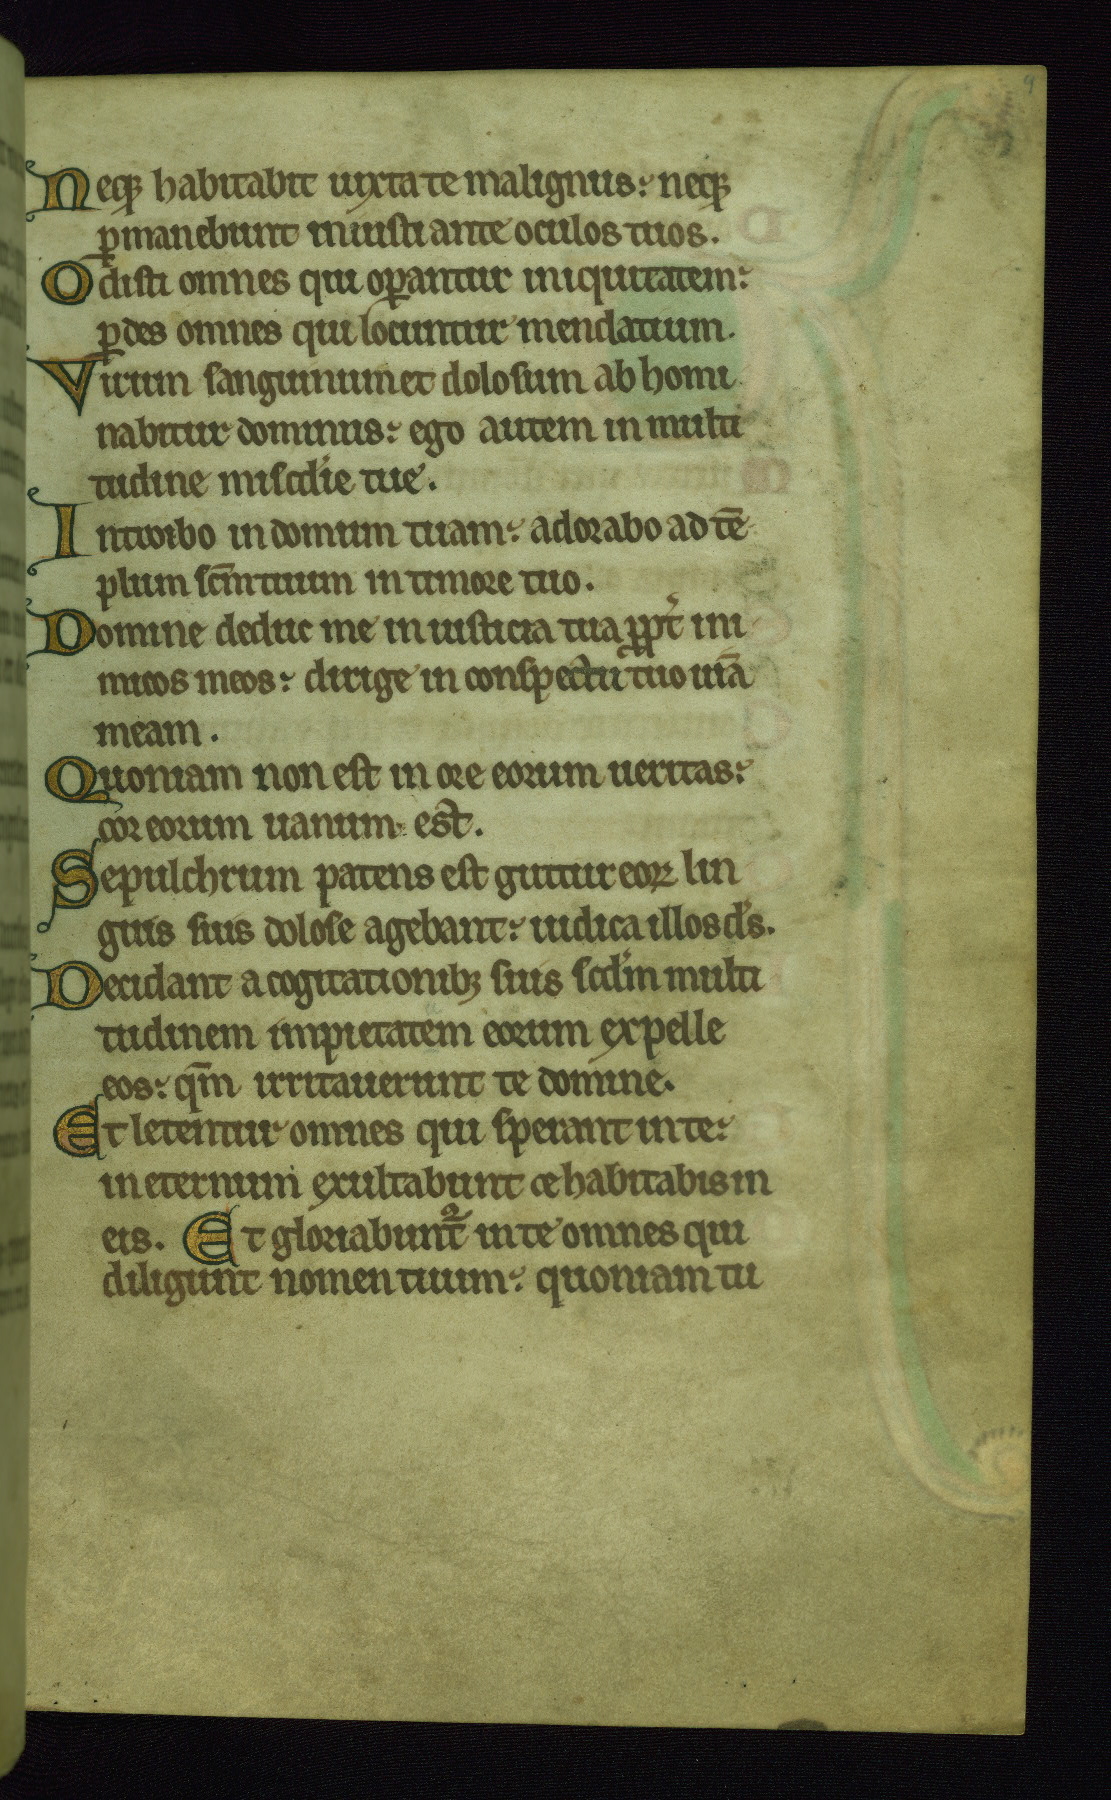 9
Neq; habitabit iuxta te malignus: neq;
ꝑmanebunt iniusti ante oculos tuos.
Odisti omnes qui oꝑantur iniquitatem:
ꝑdes omnes qui locuntur mendatium.
Virum sanguinum et dolosum abhomi
nabitur dominus: ego autem in multi
tudine misc̄die tue.
Introibo in domum tuam: adorabo ad tē
plum sc̄m tuum in timore tuo.
Domine deduc me in iusticia tua ꝓpt̄ ini
micos meos: dirige in conspectu tuo uiā
meam.
Quoniam non est in ore eorum ueritas:
cor eorum uanum est.
Sepulchrum patens est guttur eoꝝ lin
guis suis dolose agebant: iudica illos ds̄.
Decidant a cogitationib; suis scd̄m multi
tudinem impietatem eorum expelle
eos: qm̄ irritauerunt te domine.
Et letentur omnes qui sperant in te:
in eternum exultabunt & habitabis in
eis. Et gloriabunt᷑ in te omnes qui
diligunt nomen tuum: quoniam tu